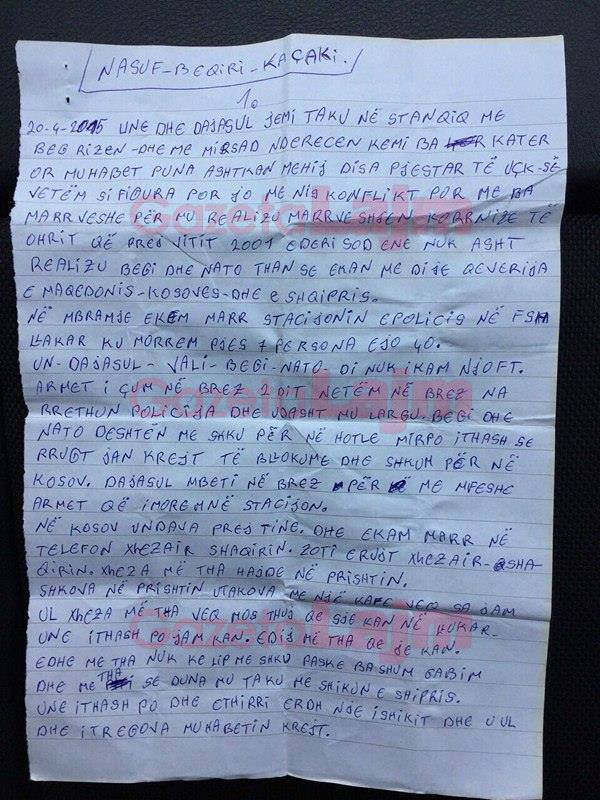 NASUF-BEQIRI-KAÇAKI.
1.
20-4-2015 UNE DHE DAJASUL JEMI TAKU NË STANQIQ ME
BEG RIZEN-DHE ME MIRSAD NDERECEN KEMI BA KATER
OR MUHABET PUNA ASHTKAN MEHIJ DISA PJESTAR TË UÇK-SË
VETËM SI FIGURA POR JO ME NIS KONFLIKT POR ME BA
MARRVESHE PËR MU REALIZU MARRVESHJEN KORRNIZE TË
OHRIT QË PREJ VITIT 2001 EDERI SOD ENE NUK ASHT
REALIZU BEGI DHE NATO THAN SE EKAN ME DIJE QEVERIJA
E MAQEDONIS-KOSOVES-DHE E SHQIPRIS.
NË MBRAMJE EKEM MARR STACIJONIN EPOLICIS NË FSHA
LLAKAR KU MORREM PJES 7 PERSONA EJO 40.
UN-DAJASUL-VALI-BEGI-NATO-DI NUK IKAM NJOFT.
ARMET I ÇUM NË BREZ 2 DIT NETËM NË BREZ NA
RRETHUN POLICIJA DHE UDASHT MU LARGU. BEGI DHE
NATO DESHTËN ME SHKU PËR NË HOTLE MIRPO ITHASH SE
RRUGT JAN KREJT TË BLLOKUME DHE SHKUM PËR NË
KOSOV. DAJASUL MBETI NË BREZ PËR ME MPESHE
ARMET QË IMOREM NË STACIJON.
NË KOSOV UNDAVA PREJ TINE. DHE EKAM MARR NË
TELEFON XHEZAIR SHAQIRIN. ZOTI ERUJT XHEZAIR-SHA-
QIRIN. XHEZA MË THA HAJDE NË PRISHTIN.
SHKOVA NË PRISHTIN UTAKOVA ME NJE KAFE VEQ SA JAM
UL XHEZA MË THA VEQ MOS THUJ QE SJE KAN NË LLUKAR-
UNE ITHASH PO JAM KAN. EDIJ MË THA QE JE KAN.
EDHE ME THA NUK KE LIP ME SHKU PASKE BA SHUM GABIM
DHE ME THA SE DUNA MU TAKU ME SHIKUN E SHIPRIS.
UNE ITHASH PO DHE ETHIRRI ERDH NJE ISHIKIT DHE U UL
DHE ITREGOVA MUHABETIN KREJT.